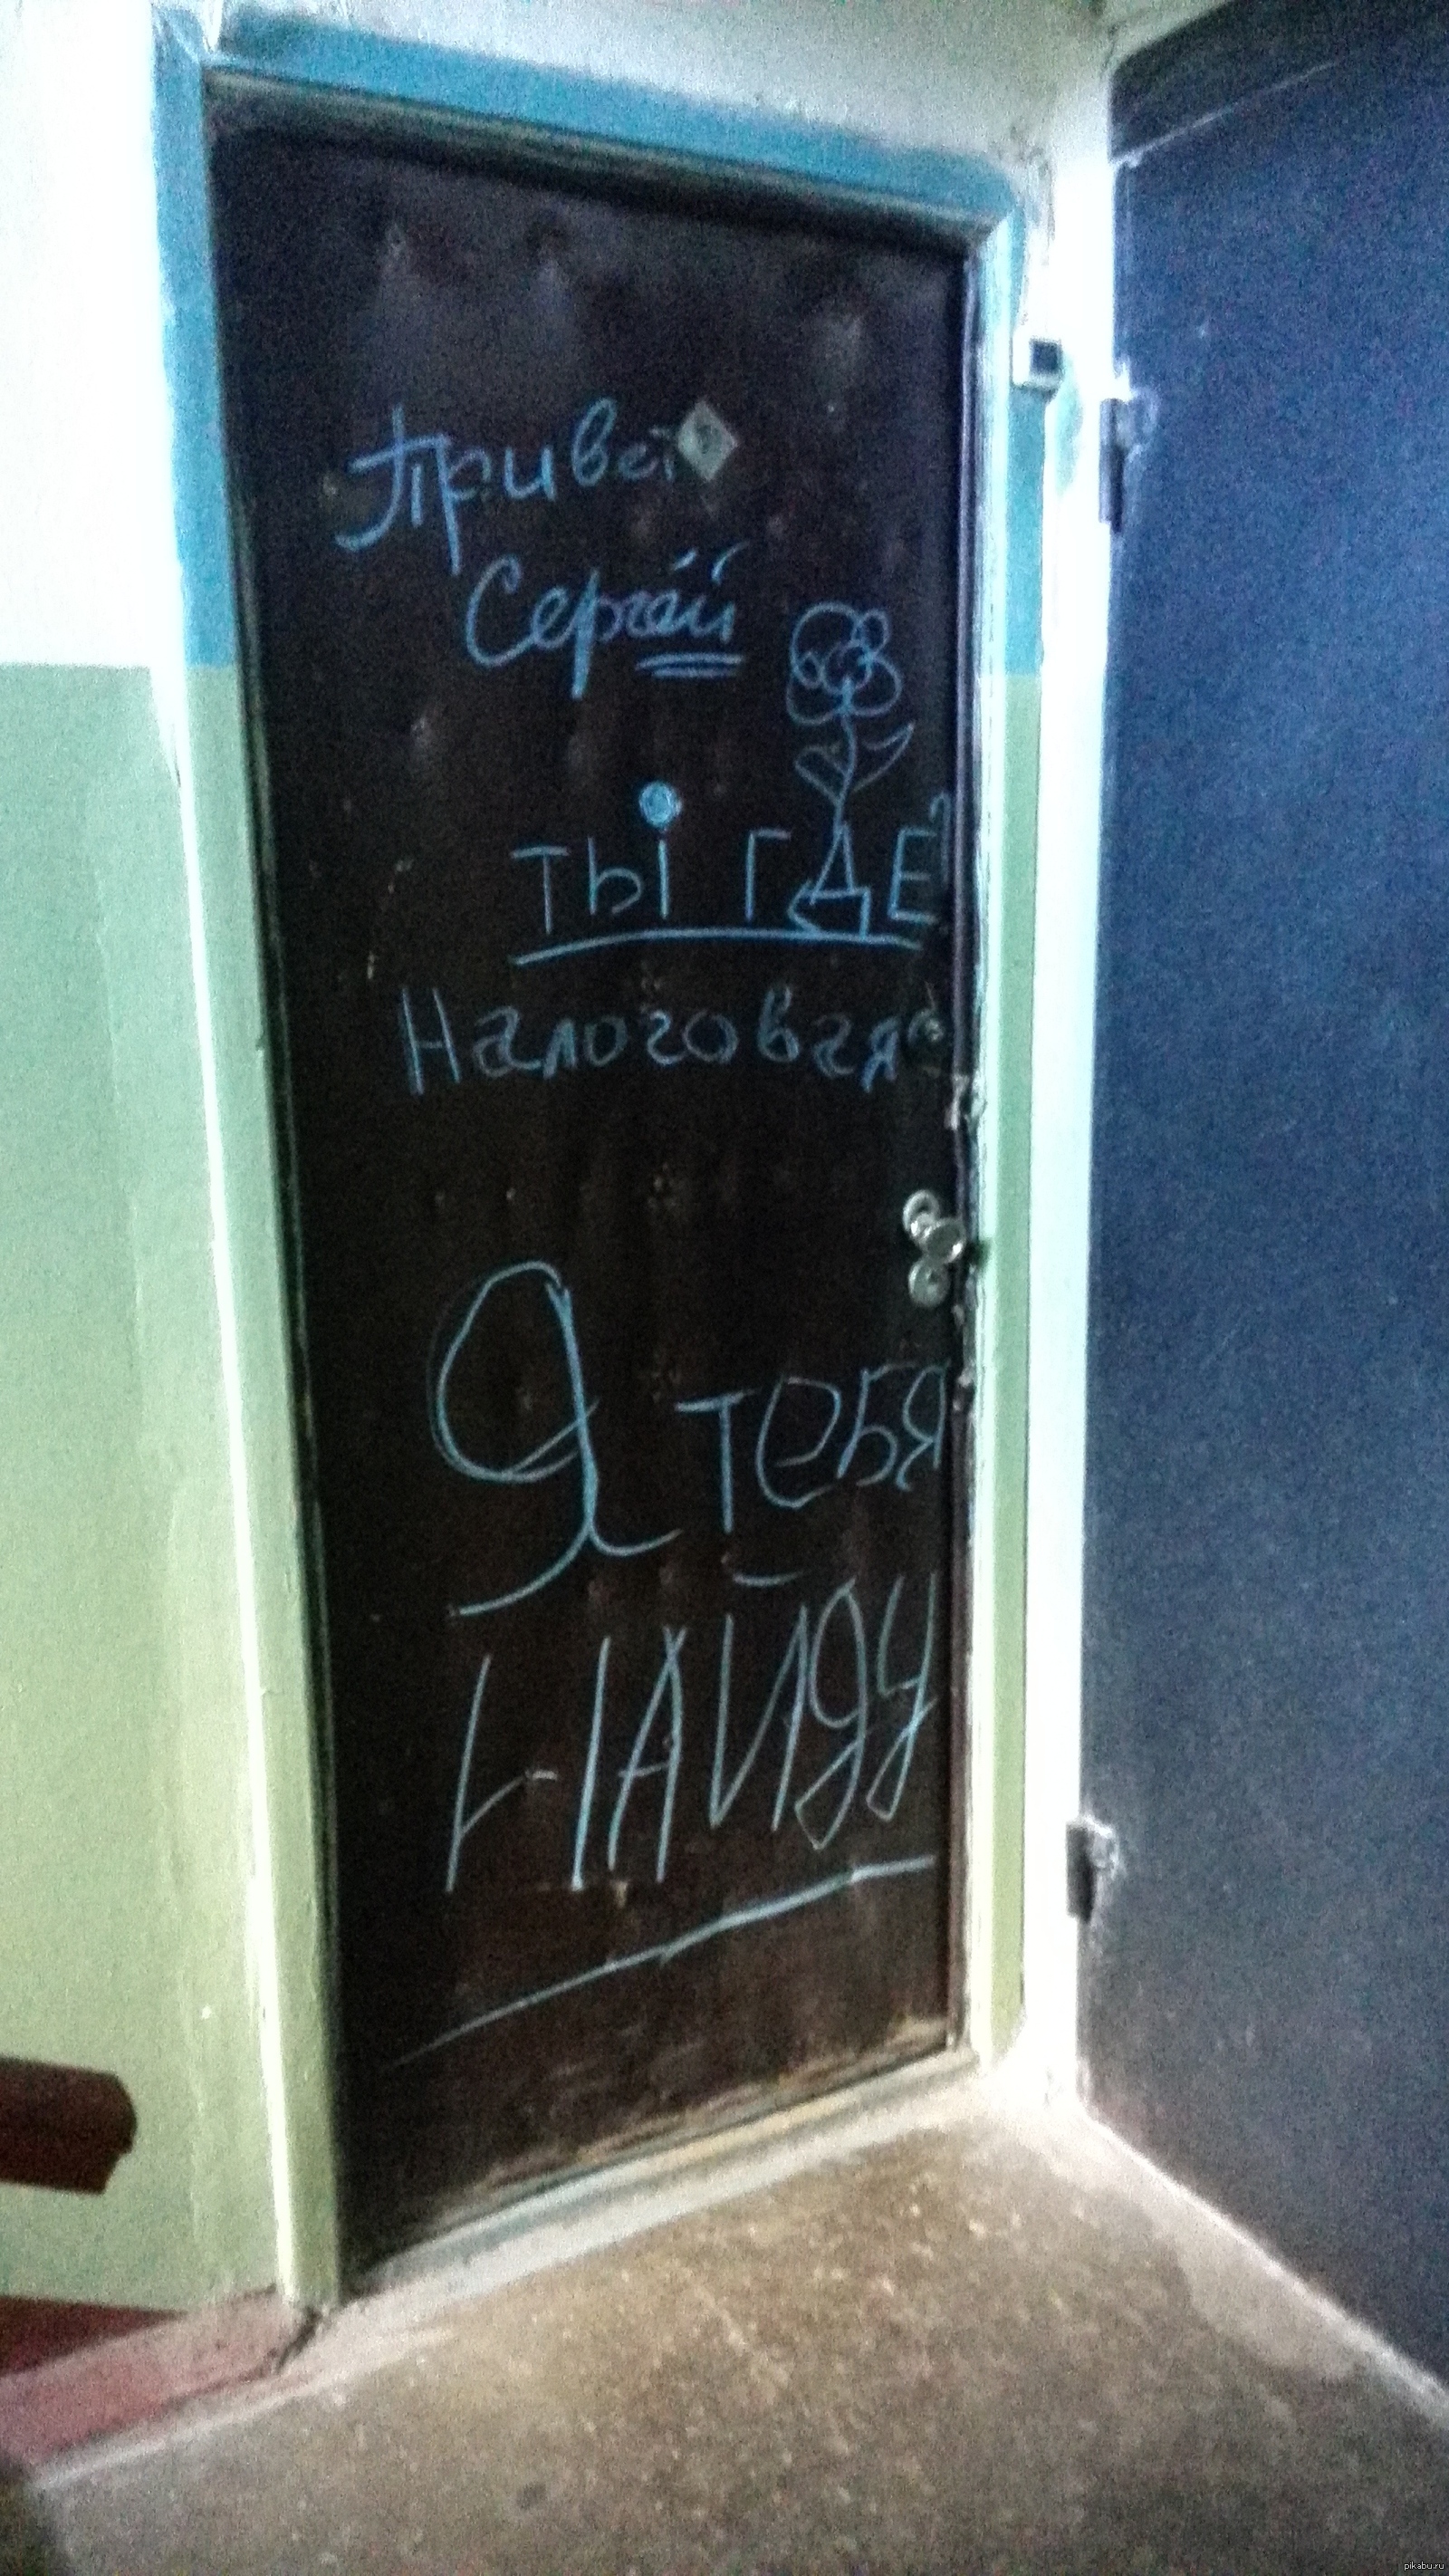 Привет
Сергей
ТЫ ГДЕ?
Налоговая
Я тебя
НАЙДУ
pikabu.ru